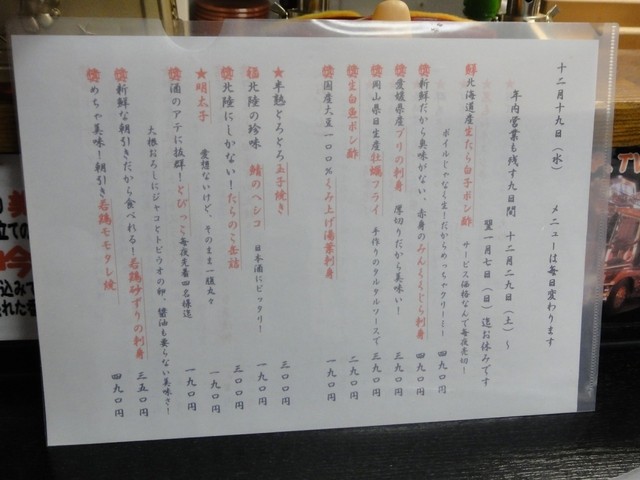 十二月十九日（水）　メニューは毎日変わります
年内営業も残す九日間　十二月二九日（土）～
翌一月七日（日）迄お休みです
鮮北海道産生たら白子ポン酢　サービス価格なんで毎夜売切！　四九〇円
ボイルじゃなく生！だからめっちゃクリーミー
新鮮だから臭味がない、赤身のみんくくじら刺身　四九〇円
愛媛県産ブリの刺身　厚切りだから美味い！　四九〇円
岡山県日生産牡蠣フライ　手作りのタルタルソースで　三九〇円
生白魚ポン酢　二九〇円
国産大豆一〇〇％くみ上げ湯葉刺身　三九〇円
★半熟とろとろ玉子焼き　三〇〇円
福北陸の珍味　鯖のヘシコ　日本酒にピッタリー　一九〇円
北陸にしかない！たらのこ缶詰　三〇〇円
★明太子　愛想ないけど、そのまま一腹丸々　一九〇円
酒のアテに抜群！とびっこ毎夜先着四名様迄　一九〇円
大根おろしにジャコとトビウオの卵、醤油も要らない美味さ！
新鮮な朝引きだから食べれる！若鶏砂ずりの刺身　三五〇円
めちゃ美味！朝引き若鶏モモタレ焼　四九〇円